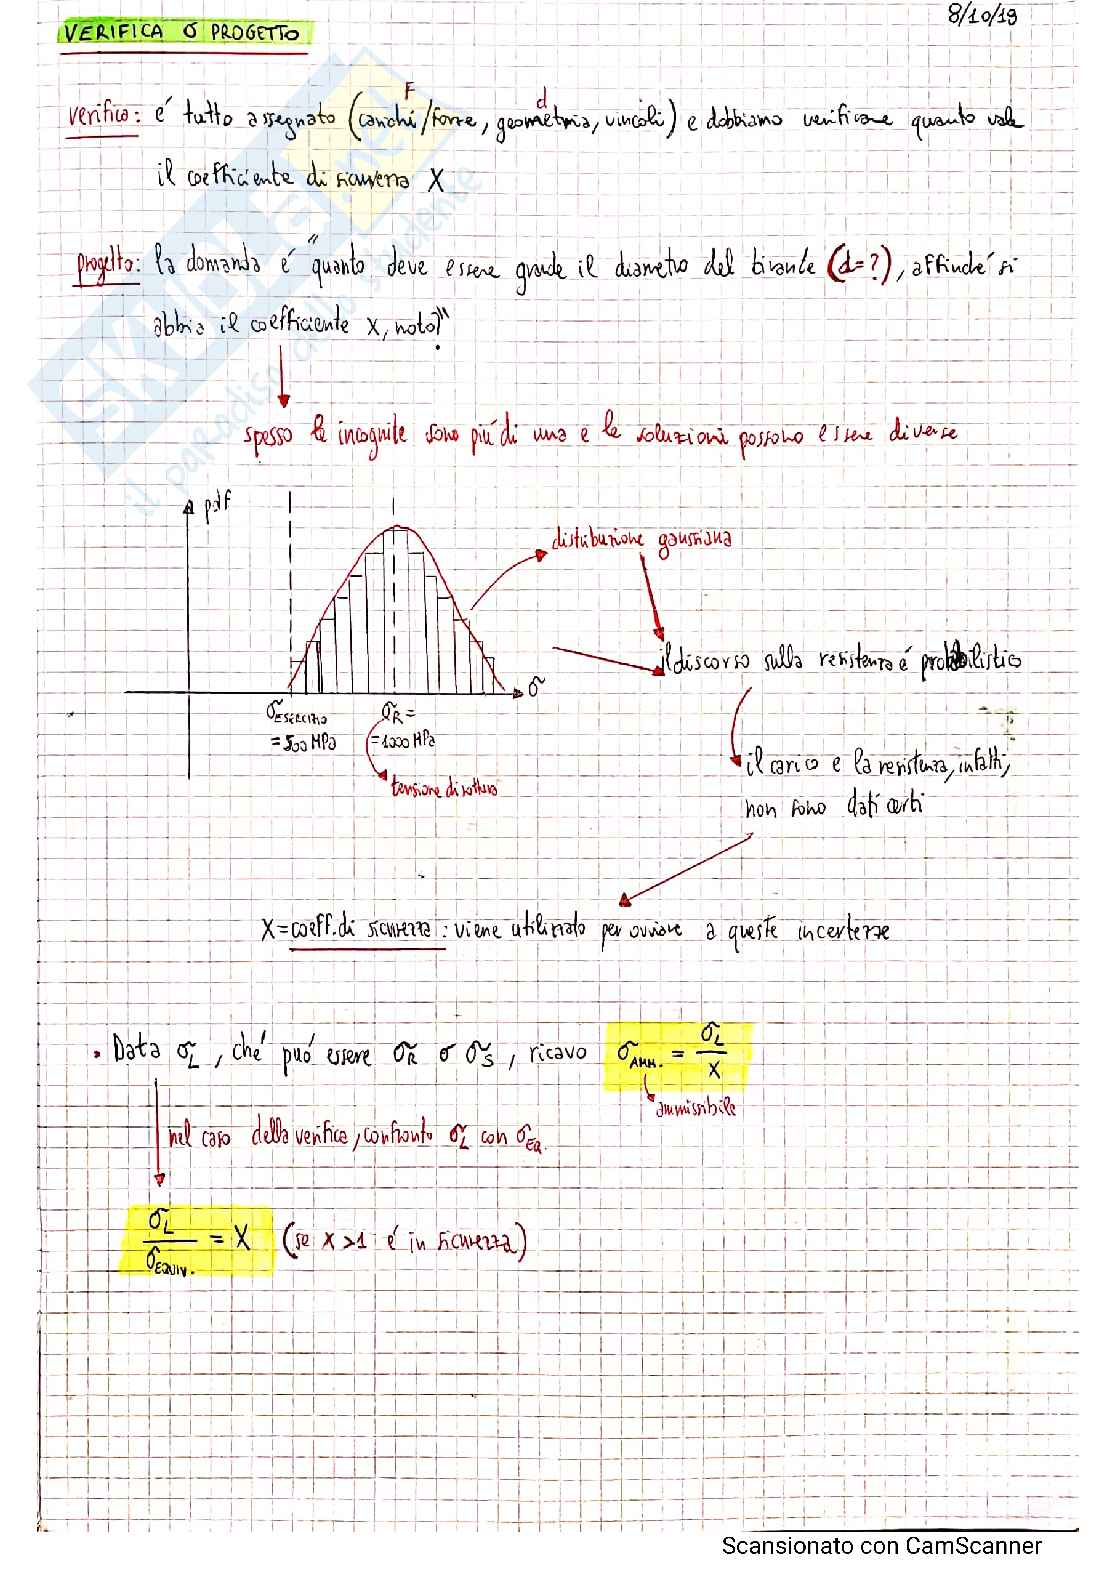 8/10/19
VERIFICA O PROGETTO
F
d
verifica: é tutto assegnato (carichi/forze, geometria, vincoli) e dobbiamo verificare quanto vale
il coefficiente di sicurezza X
progetto: la domanda é "quanto deve essere grande il diametro del tirante (d=?), affinché si
abbia il coefficiente X, noto?"
spesso le incognite sono piú di una e le soluzioni possono essere diverse
pdf
distribuzione gaussiana
il discorso sulla resistenza é probabilistico
σ
σESERCIZIO
= 500 MPa
σR =
= 1000 MPa
tensione di rottura
il carico e la resistenza, infatti,
non sono dati certi
X = coeff. di sicurezza : viene utilizzato per ovviare a queste incertezze
• Data σL, ché puó essere σR o σS, ricavo σAMM. = σL / X
ammissibile
nel caso della verifica, confronto σL con σEQ.
σL / σEQUIV. = X (se X>1 é in sicurezza)
SKUOLA.net
il paradiso dello studente
Scansionato con CamScanner